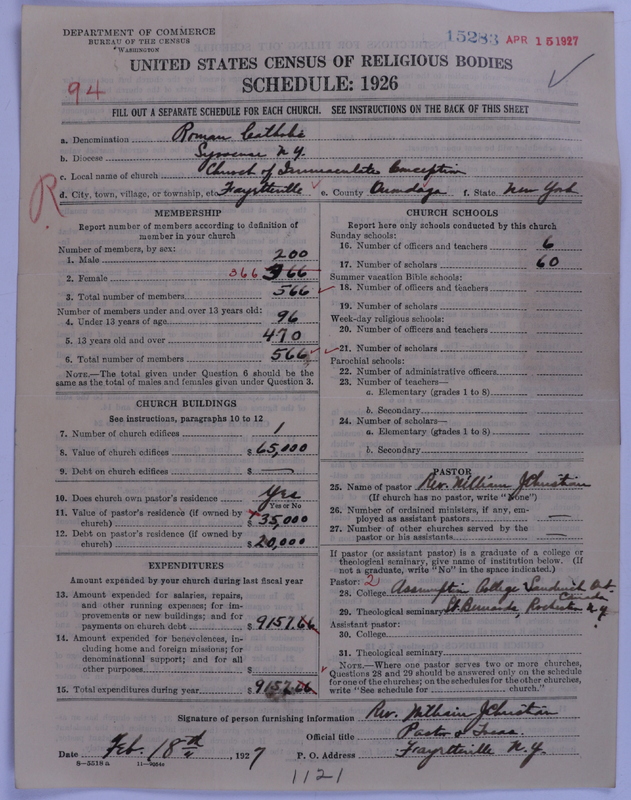 DEPARTMENT OF COMMERCE
BUREAU OF THE CENSUS
WASHINGTON
15283 APR 15 1927
UNITED STATES CENSUS OF RELIGIOUS BODIES
SCHEDULE: 1926
94
FILL OUT A SEPARATE SCHEDULE FOR EACH CHURCH. SEE INSTRUCTIONS ON THE BACK OF THIS SHEET
a. Denomination Roman Catholic
b. Diocese Syracuse N.Y.
c. Local name of church Church of Immaculate Conception
d. City, town, village, or township, etc Fayetteville e. County Onondaga f. State New York
R
MEMBERSHIP
Report number of members according to definition of
member in your church
Number of members, by sex:
1. Male 200
2. Female 366 366
3. Total number of members 566
Number of members under and over 13 years old:
4. Under 13 years of age 96
5. 13 years old and over 470
6. Total number of members 566
NOTE.—The total given under Question 6 should be the
same as the total of males and females given under Question 3.
CHURCH BUILDINGS
See instructions, paragraphs 10 to 12
7. Number of church edifices 1
8. Value of church edifices $ 65,000
9. Debt on church edifices $ —
10. Does church own pastor's residence Yes
Yes or No
11. Value of pastor's residence (if owned by
church) $ 35,000
12. Debt on pastor's residence (if owned by
church) $ 20,000
EXPENDITURES
Amount expended by your church during last fiscal year
13. Amount expended for salaries, repairs,
and other running expenses; for im-
provements or new buildings; and for
payments on church debt $ 9157.66
14. Amount expended for benevolences, in-
cluding home and foreign missions; for
denominational support; and for all
other purposes $
15. Total expenditures during year $ 9157.66
CHURCH SCHOOLS
Report here only schools conducted by this church
Sunday schools:
16. Number of officers and teachers 6
17. Number of scholars 60
Summer vacation Bible schools:
18. Number of officers and teachers
19. Number of scholars
Week-day religious schools:
20. Number of officers and teachers
21. Number of scholars
Parochial schools:
22. Number of administrative officers
23. Number of teachers—
a. Elementary (grades 1 to 8)
b. Secondary
24. Number of scholars—
a. Elementary (grades 1 to 8)
b. Secondary
PASTOR
25. Name of pastor Rev. William J Christian
(If church has no pastor, write "None")
26. Number of ordained ministers, if any, em-
ployed as assistant pastors —
27. Number of other churches served by the
pastor or his assistants —
If pastor (or assistant pastor) is a graduate of a college or
theological seminary, give name of institution below. (If
not a graduate, write "No" in the space indicated.)
Pastor: 2
28. College Assumption College Sandwich Ont
Canada
29. Theological seminary St Bernards, Rochester N.Y.
Assistant pastor:
30. College
31. Theological seminary
NOTE.—Where one pastor serves two or more churches,
Questions 28 and 29 should be answered only on the schedule
for one of the churches; on the schedules for the other churches,
write "See schedule for church."
Signature of person furnishing information Rev. William J Christian
Official title Pastor & Treas
Date Feb. 18th, 1927 P. O. Address Fayetteville N.Y.
8—5518 a
1121